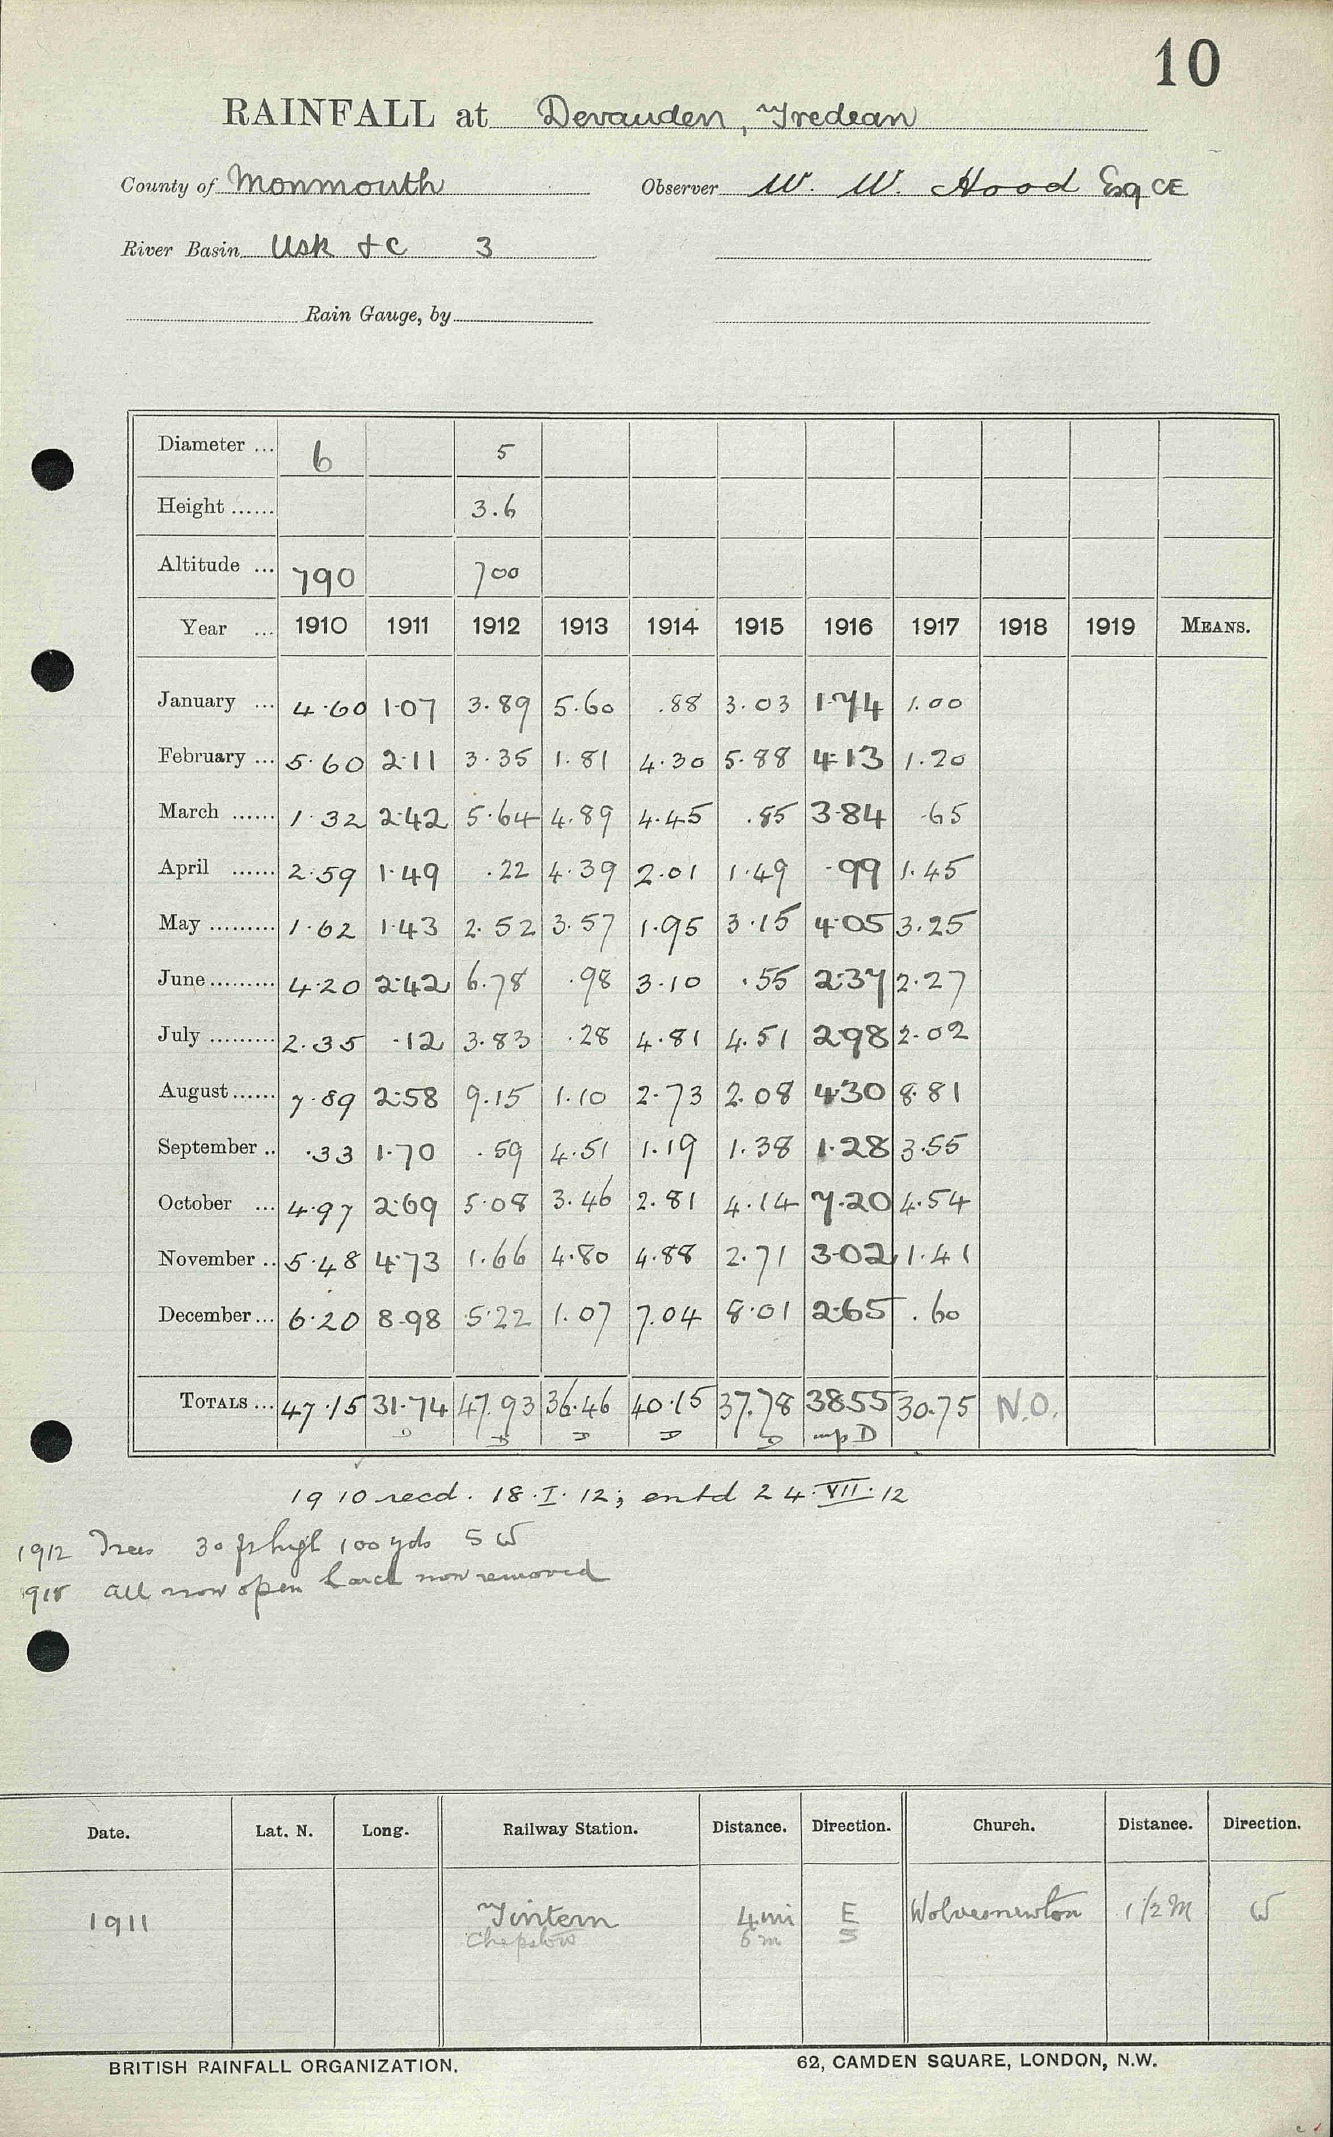 10
RAINFALL at Devauden, Tredean
County of Monmouth Observer W. W. Hood Esq CE
River Basin Usk &c 3
Rain Gauge, by
Diameter ... 6 5
Height ...... 3.6
Altitude ... 790 700
Year ... 1910 1911 1912 1913 1914 1915 1916 1917 1918 1919 MEANS.
January ... 4.60 1.07 3.89 5.60 .88 3.03 1.74 1.00
February ... 5.60 2.11 3.35 1.81 4.30 5.88 4.13 1.20
March ...... 1.32 2.42 5.64 4.89 4.45 .85 3.84 .65
April ...... 2.59 1.49 .22 4.39 2.01 1.49 .99 1.45
May ......... 1.62 1.43 2.52 3.57 1.95 3.15 4.05 3.25
June ......... 4.20 2.42 6.78 .98 3.10 .55 2.37 2.27
July ......... 2.35 .12 3.83 .28 4.81 4.51 2.98 2.02
August ...... 7.89 2.58 9.15 1.10 2.73 2.08 4.30 8.81
September .. .33 1.70 .59 4.51 1.19 1.38 1.28 3.55
October ... 4.97 2.69 5.08 3.46 2.81 4.14 7.20 4.54
November .. 5.48 4.73 1.66 4.80 4.88 2.71 3.02 1.41
December ... 6.20 8.98 5.22 1.07 7.04 8.01 2.65 .60
TOTALS ... 47.15 31.74 47.93 36.46 40.15 37.78 38.55 30.75 N.O.
D D D D D mp D
1910 recd. 18.I.12; entd 24.VII.12
1912 Trees 30 ft high 100 yds SW
all now open now removed
Date. Lat. N. Long. Railway Station. Distance. Direction. Church. Distance. Direction.
1911 Tintern 4 mi E Wolvesnewton 1 1/2 M W
Chepstow 5 m S
BRITISH RAINFALL ORGANIZATION. 62, CAMDEN SQUARE, LONDON, N.W.